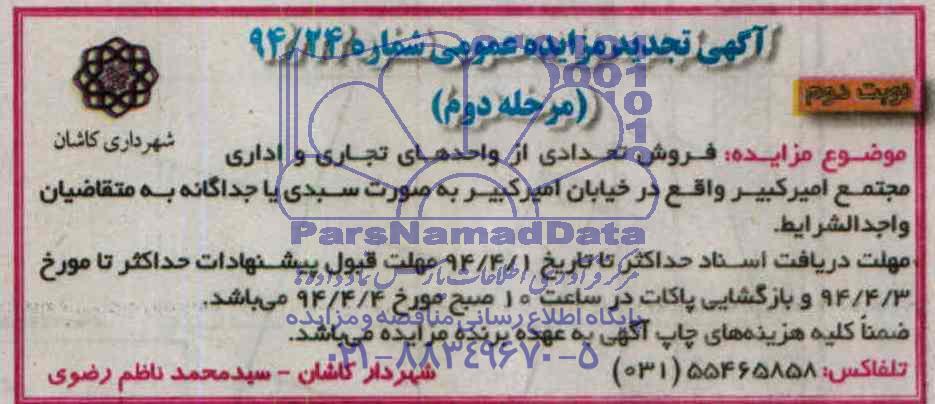 آگهی تجدید مزایده عمومی شماره ۹۴/۲۴
(مرحله دوم)
نوبت دوم
شهرداری کاشان
موضوع مزایده: فروش تعدادی از واحدهای تجاری و اداری
مجتمع امیرکبیر واقع در خیابان امیرکبیر به صورت سبدی یا جداگانه به متقاضیان
واجدالشرایط.
مهلت دریافت اسناد حداکثر تا تاریخ ۹۴/۴/۱ مهلت قبول پیشنهادات حداکثر تا مورخ
۹۴/۴/۳ و بازگشایی پاکات در ساعت ۱۰ صبح مورخ ۹۴/۴/۴ می‌باشد.
ضمناً کلیه هزینه‌های چاپ آگهی به عهده برنده مزایده می‌باشد.
تلفاکس: ۵۵۴۶۵۸۵۸ (۰۳۱)
شهردار کاشان - سیدمحمد ناظم رضوی
ParsNamadData
مرکز فرآوری اطلاعات پارس نماد داده‌ها
پایگاه اطلاع رسانی مناقصه و مزایده
۰۲۱-۸۸۳۴۹۶۷۰-۵